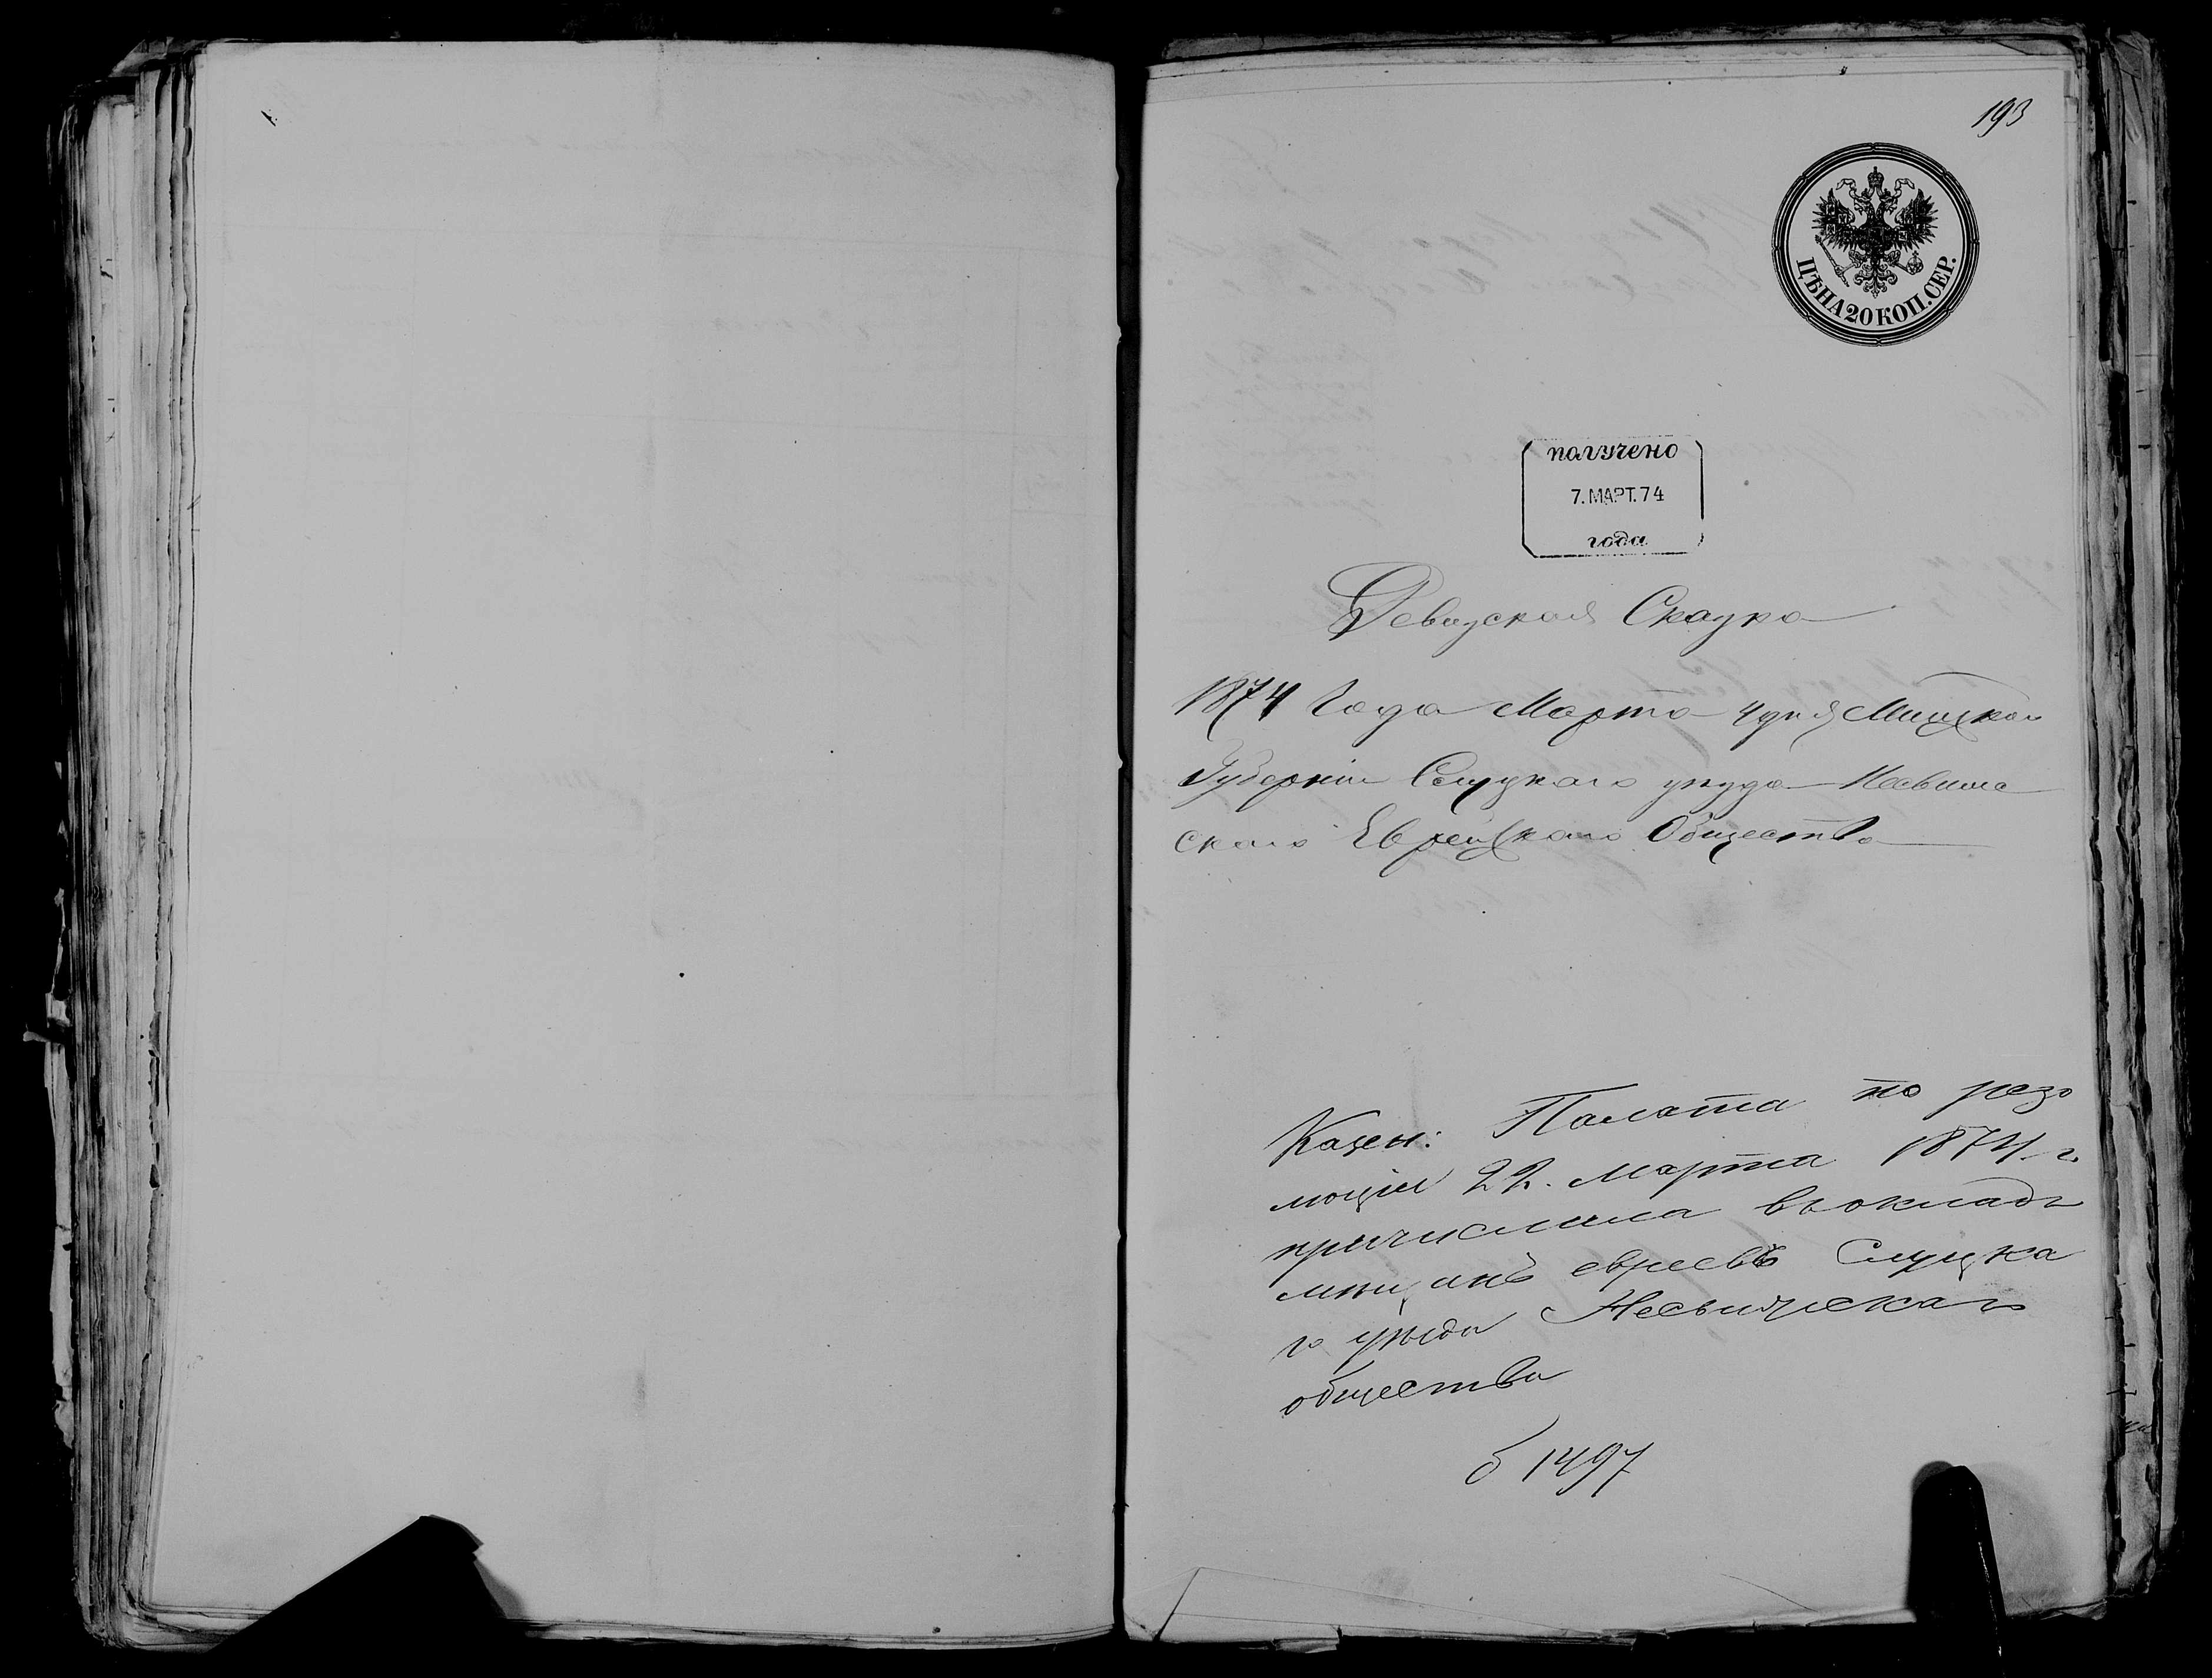 193
ЦѢНА 20 КОП. СЕР.
получено
7. МАРТ. 74
года
Ревизская Сказка
1874 Года Марта 4 дня Минской
Губерніи Слуцкаго уезда Несвижс
скаго Еврейскаго Общества
Казен: Палата по резо
люціи 22. Марта 1874 г.
причислила въ окладъ
мѣщанъ евреевъ Слуцка
го уѣзда Несвижскаго
общества
б 1497